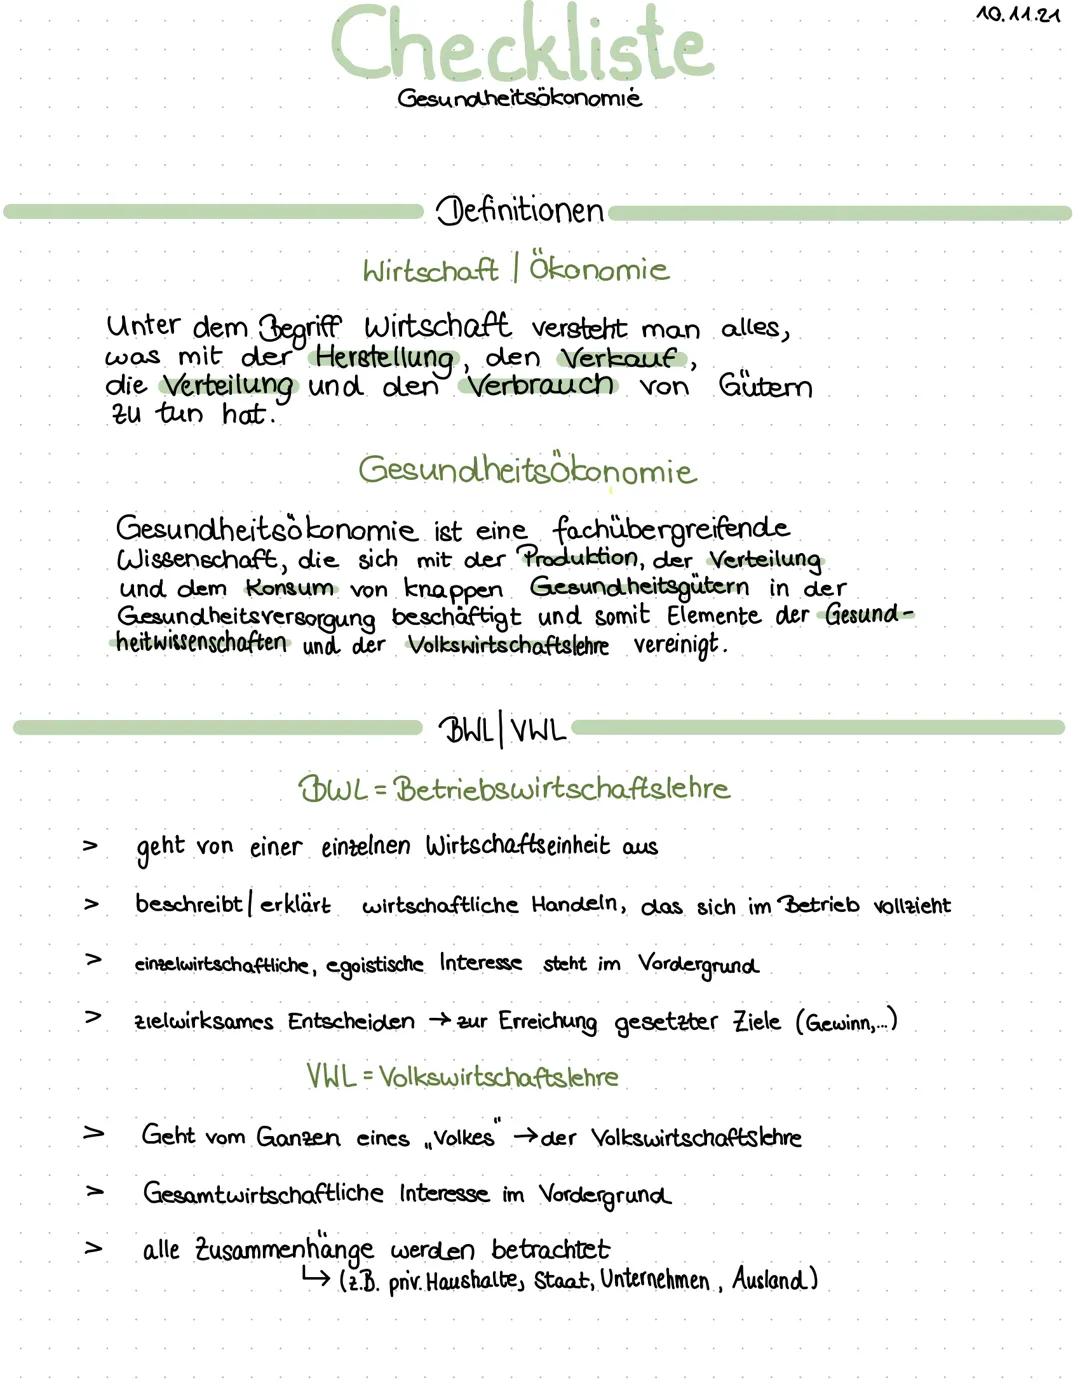 10.11.21
Checkliste
Gesundheitsökonomie
Definitionen
Wirtschaft | Ökonomie
Unter dem Begriff Wirtschaft versteht man alles,
was mit der Herstellung, den Verkauf,
die Verteilung und den Verbrauch von Gütern
zu tun hat.
Gesundheitsökonomie
Gesundheitsökonomie ist eine fachübergreifende
Wissenschaft, die sich mit der Produktion, der Verteilung
und dem Konsum von knappen Gesundheitsgütern in der
Gesundheitsversorgung beschäftigt und somit Elemente der Gesund-
heitwissenschaften und der Volkswirtschaftslehre vereinigt.
BWL | VWL
BWL = Betriebswirtschaftslehre
> geht von einer einzelnen Wirtschaftseinheit aus
> beschreibt | erklärt wirtschaftliche Handeln, das sich im Betrieb vollzieht
> einzelwirtschaftliche, egoistische Interesse steht im Vordergrund
> zielwirksames Entscheiden → zur Erreichung gesetzter Ziele (Gewinn,...)
VWL = Volkswirtschaftslehre
> Geht vom Ganzen eines „Volkes" → der Volkswirtschaftslehre
> Gesamtwirtschaftliche Interesse im Vordergrund
> alle Zusammenhänge werden betrachtet
↳ (z.B. priv. Haushalte, Staat, Unternehmen, Ausland)